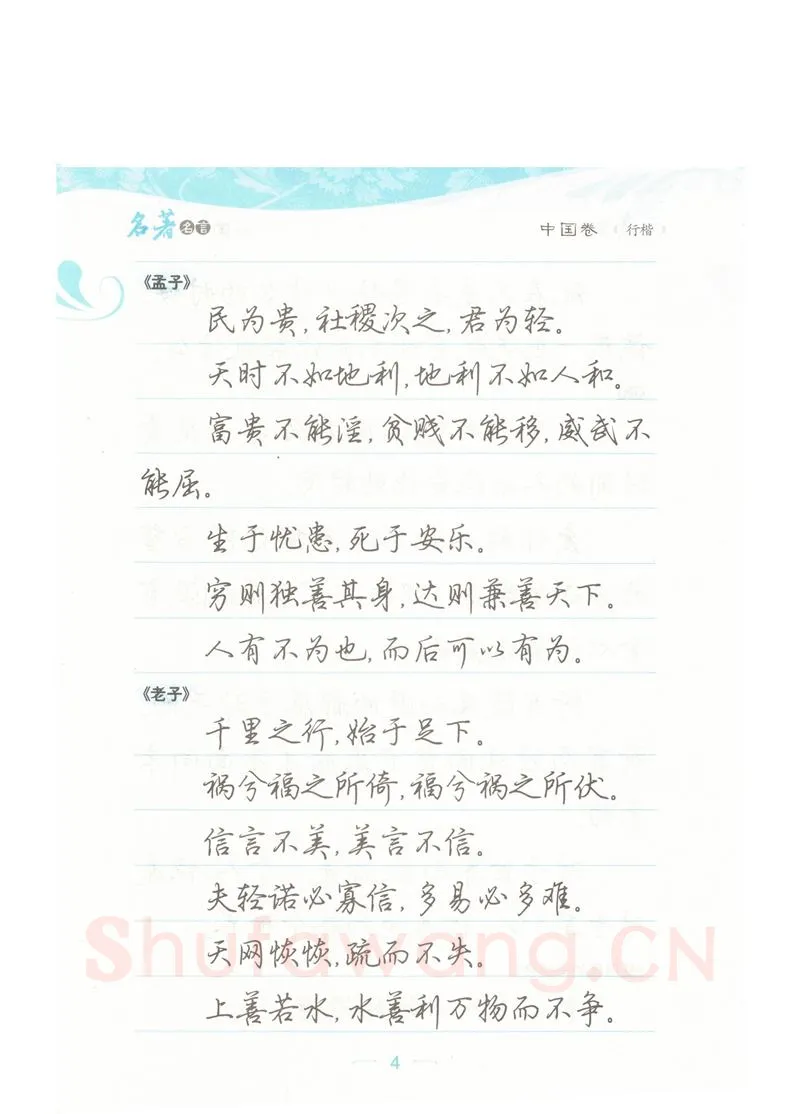 名著名言
中国卷（行楷）
《孟子》
民为贵，社稷次之，君为轻。
天时不如地利，地利不如人和。
富贵不能淫，贫贱不能移，威武不
能屈。
生于忧患，死于安乐。
穷则独善其身，达则兼善天下。
人有不为也，而后可以有为。
《老子》
千里之行，始于足下。
祸兮福之所倚，福兮祸之所伏。
信言不美，美言不信。
夫轻诺必寡信，多易必多难。
天网恢恢，疏而不失。
Shufawang.CN
上善若水，水善利万物而不争。
4